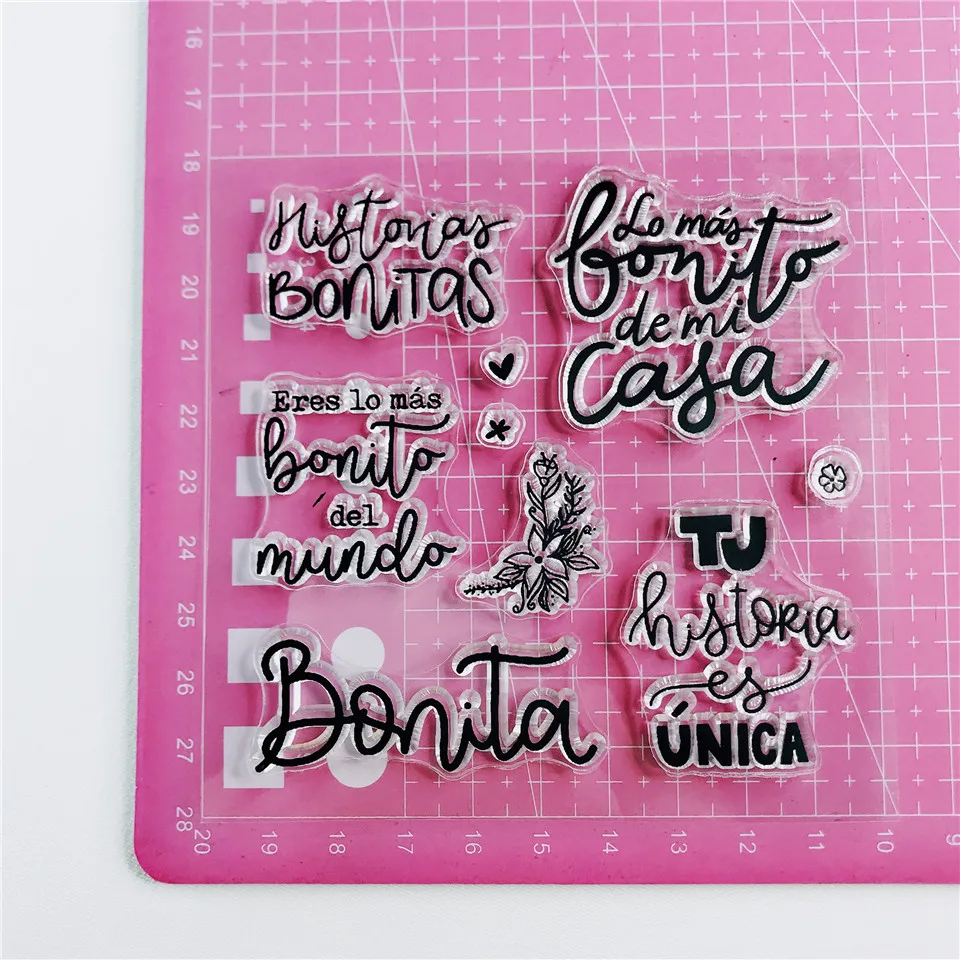 Historias
BONITAS
Lo más
bonito
de mi
Casa
Eres lo más
bonito
del
mundo
TU
historia
es
ÚNICA
Bonita
16
17
18
19
20
21
22
23
24
25
26
27
28
20 19 18 17 16 15 14 13 12 11 10 9